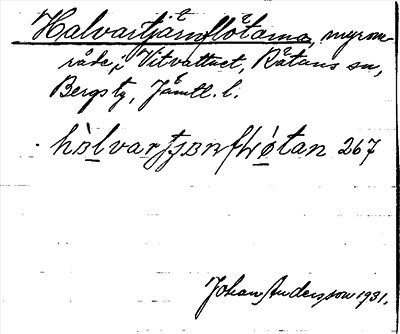 Halvartjärnflötarna, myrom-
råde, i Vitvattnet, Rätans sn,
Bergs tg, Jämtl. l.
hàlvartjɔnflòtan 267
Johan Andersson 1931.